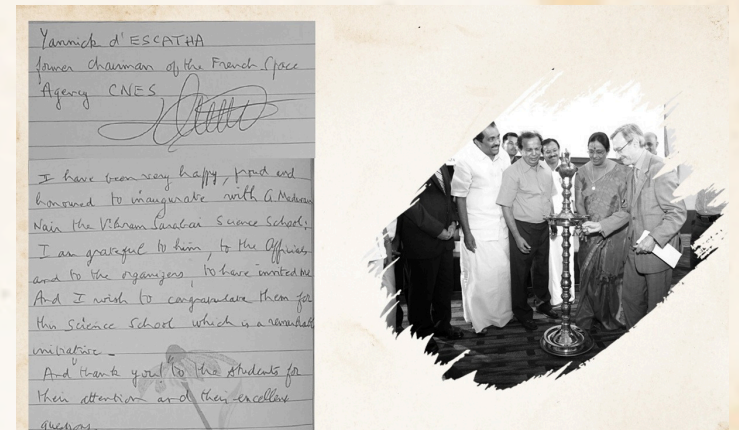 Yannick d'ESCATHA
former chairman of the French Space
Agency CNES
I have been very happy, proud and
honoured to inaugurate with G Madavan
Nair the Vikram Sarabai Science School.
I am grateful to him, to the Officials
and to the organizers, to have invited me
And I wish to congratulate them for
this Science School which is a remarkable
initiative.
And thank you to the students for
their attention and their excellent
questions.